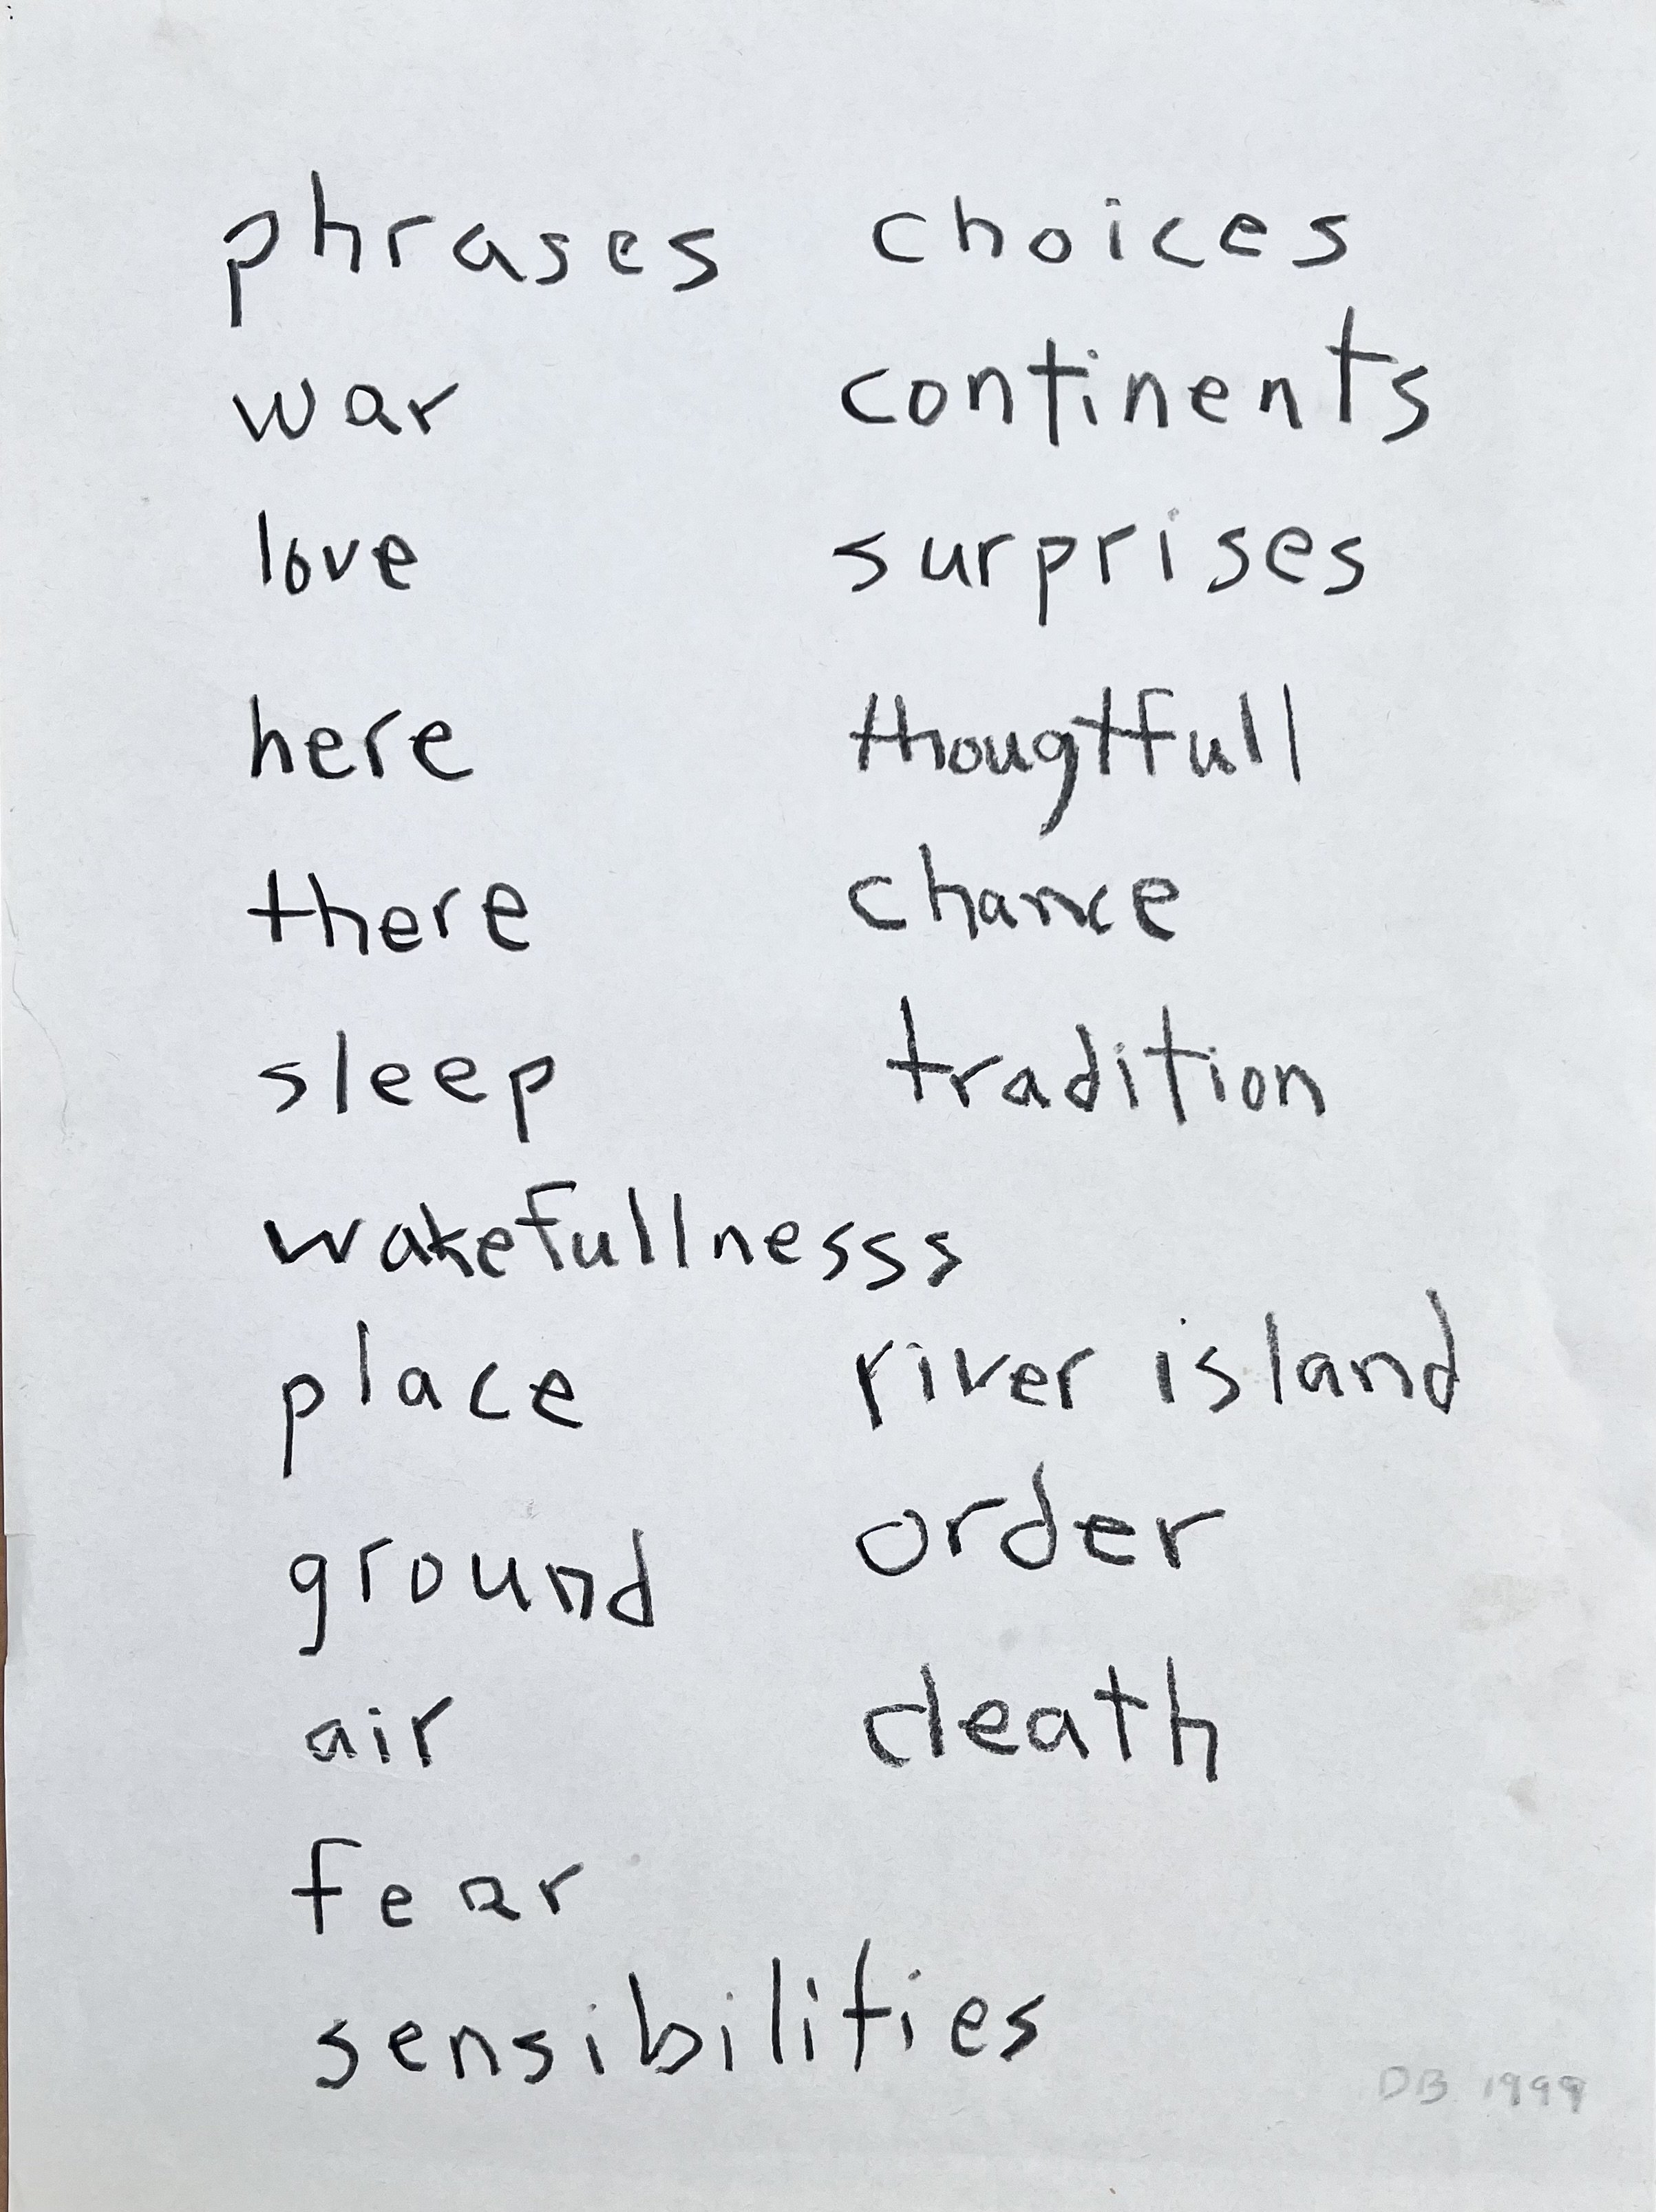 phrases choices
war continents
love surprises
here thougtfull
there chance
sleep tradition
wakefullnesss
place river island
ground order
air death
fear
sensibilities
DB 1999